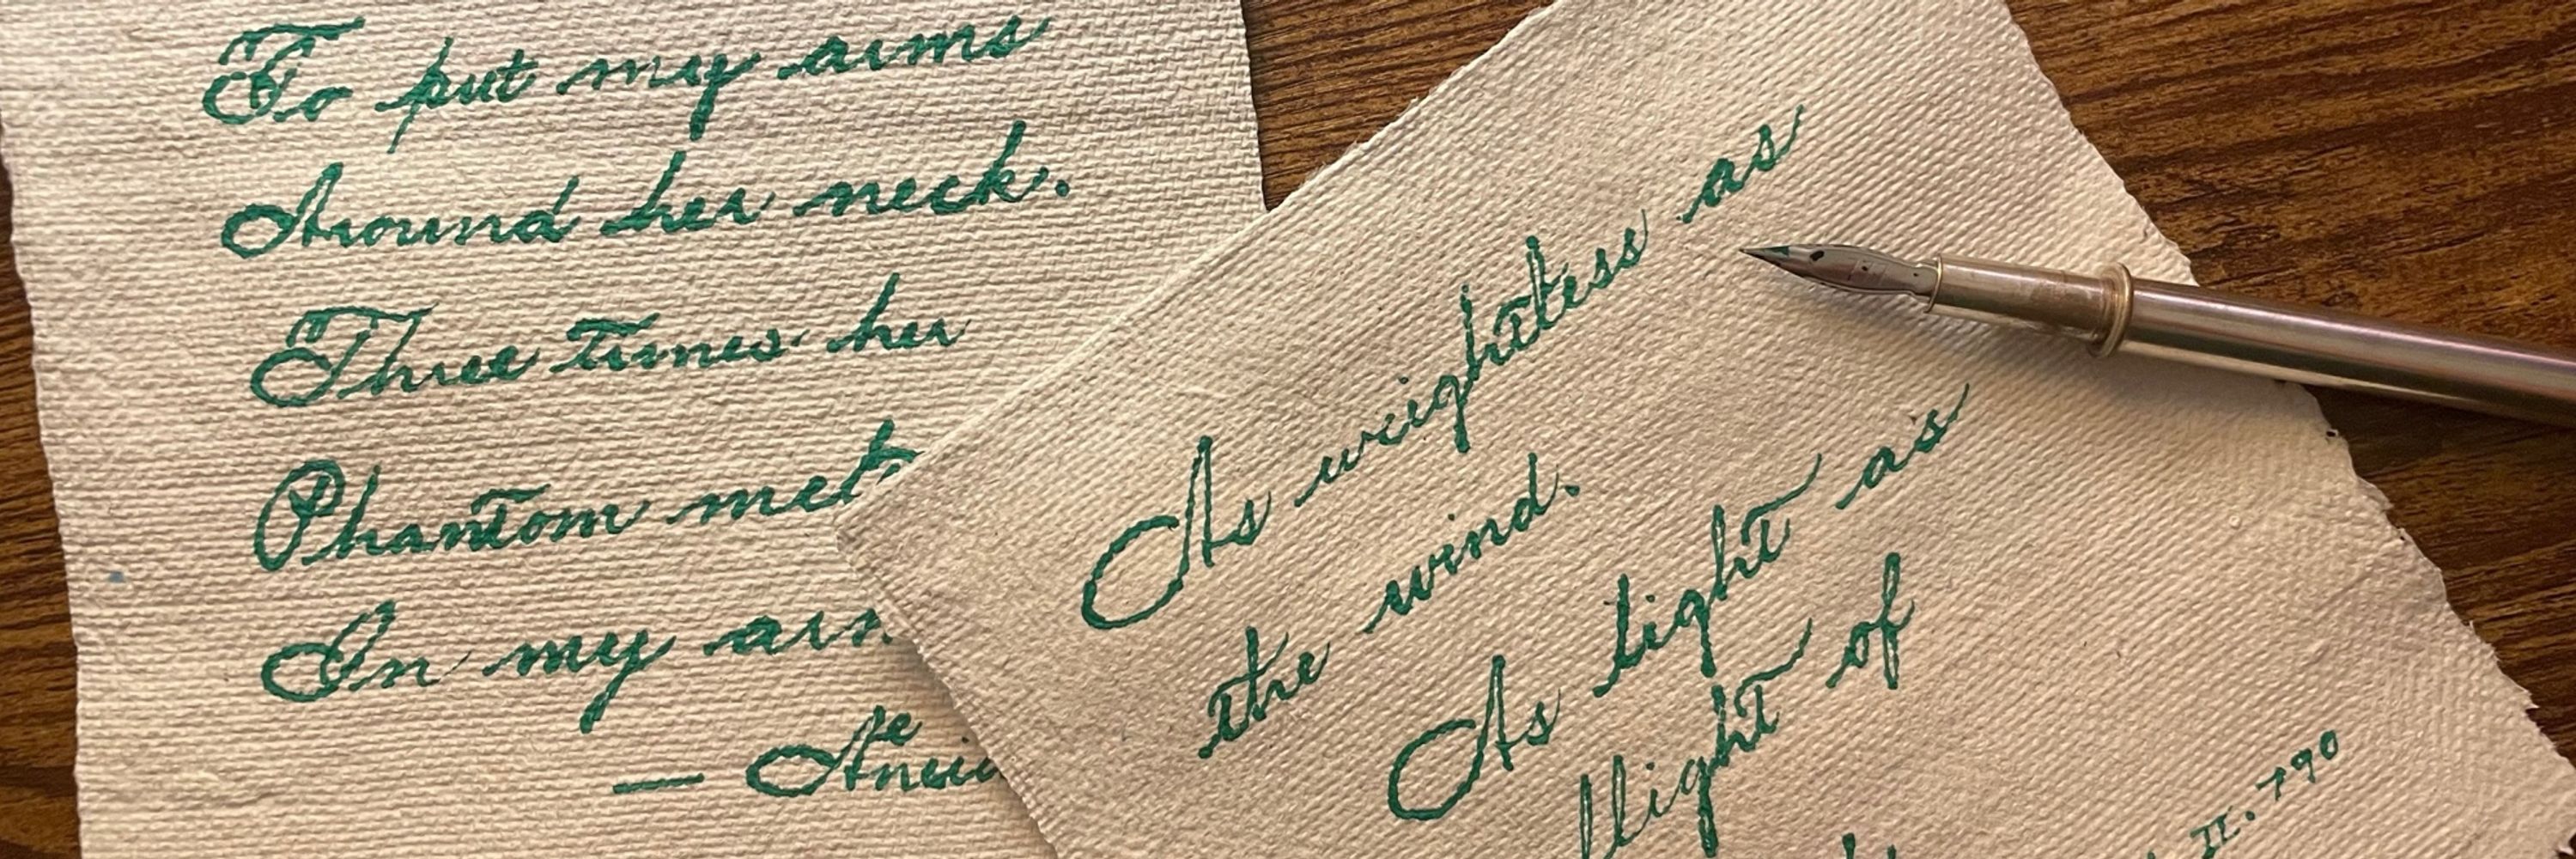 To put my arms
Around her neck.
Three times her
Phantom
In my
—
As weightless as
the wind.
As light as
flight of
II.790